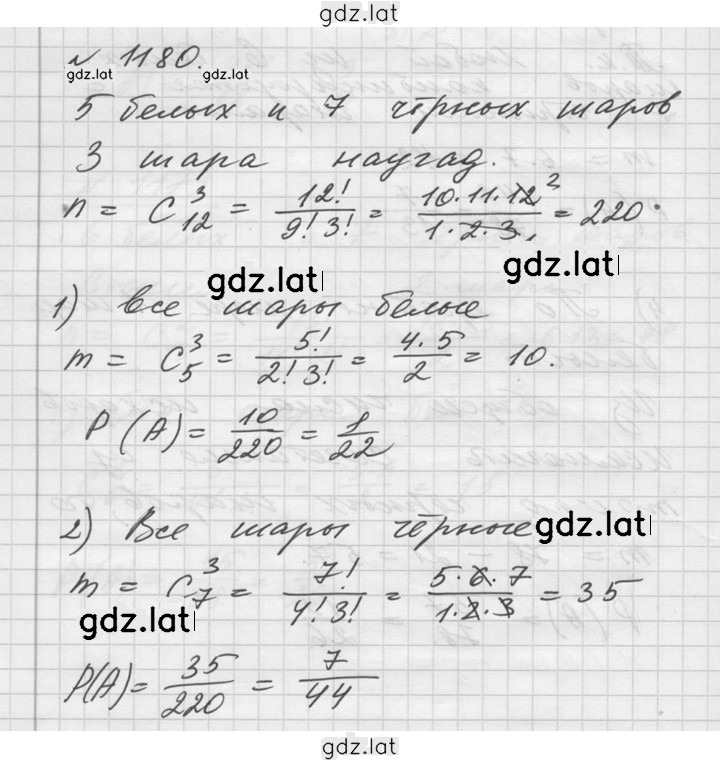 gdz.lat
№ 1180.
gdz.lat gdz.lat
5 белых и 7 чёрных шаров
3 шара наугад.
n = C₁₂³ = 12!/(9! 3!) = (10·11·12²)/(1·2·3) = 220
gdz.lat gdz.lat
1) все шары белые
m = C₅³ = 5!/(2! 3!) = (4·5)/2 = 10.
P(A) = 10/220 = 1/22
2) Все шары чёрные gdz.lat
m = C₇³ = 7!/(4! 3!) = (5·6·7)/(1·2·3) = 35
gdz.lat
P(A) = 35/220 = 7/44
gdz.lat